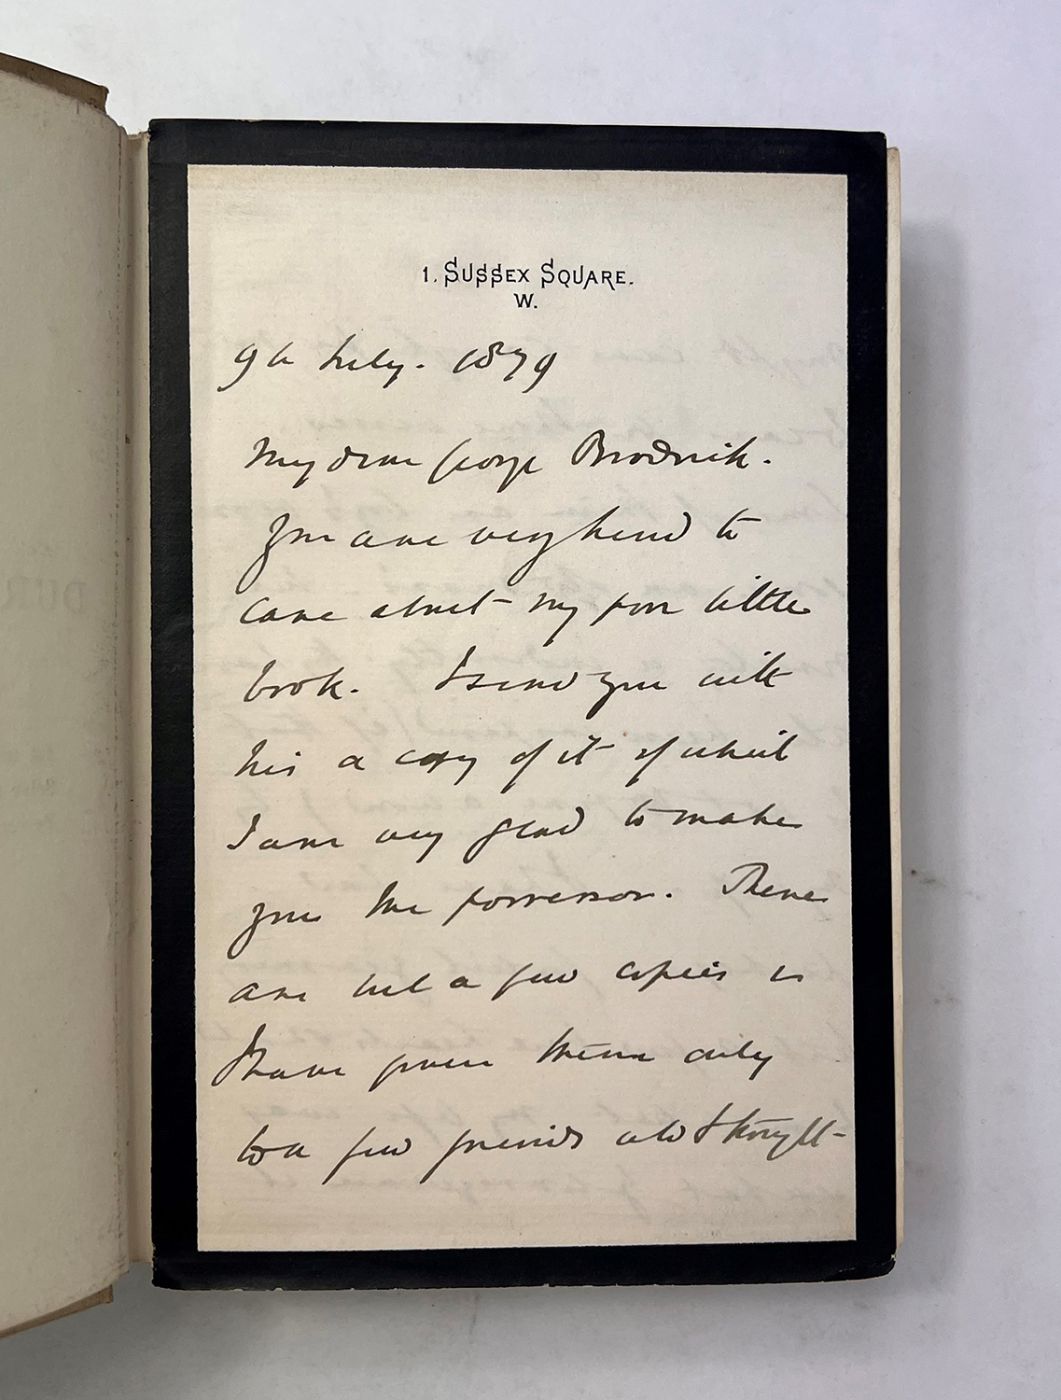 1. SUSSEX SQUARE.
W.
9th July. 1879
My dear George Brodrick.
You are very kind to
care about my poor little
book. I send you with
this a copy of it of which
I am very glad to make
you the possessor. There
are but a few copies &
I have given them only
to a few friends who I thought
DUR